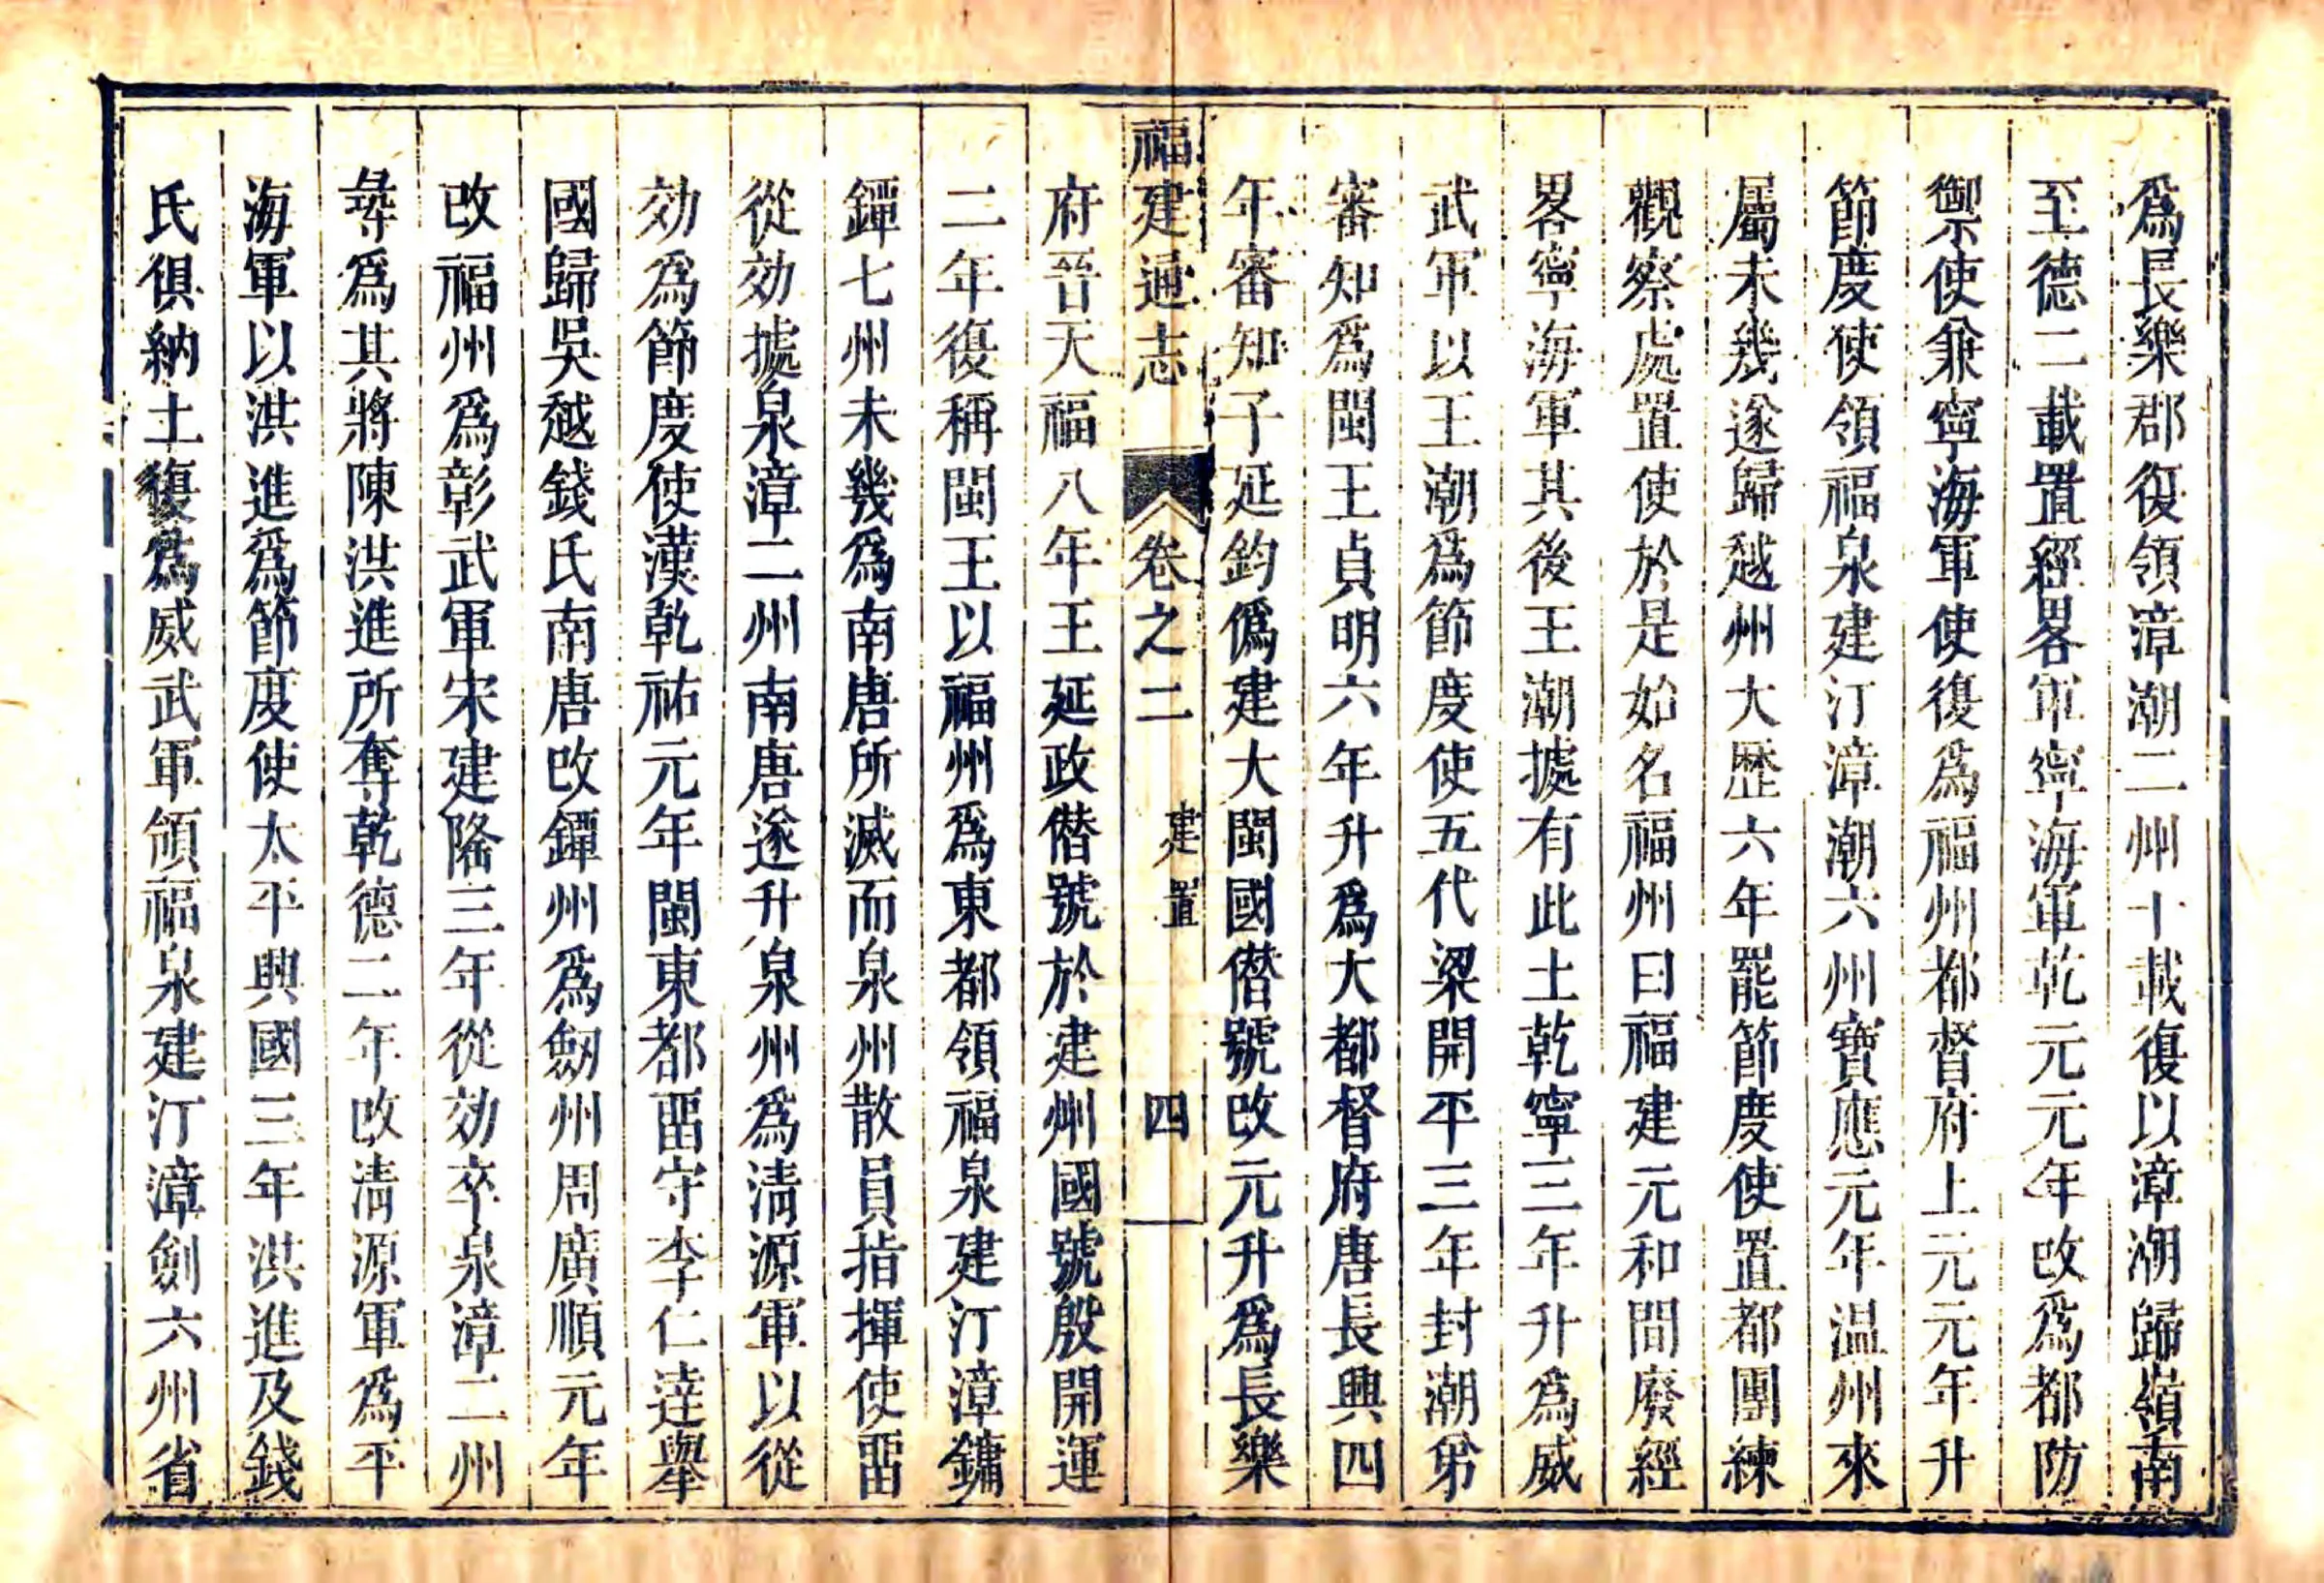 爲長樂郡復領漳潮二州十載復以漳潮歸嶺南
至德二載置經畧軍寧海軍乾元元年改爲都防
禦使兼寧海軍使復爲福州都督府上元元年升
節度使領福泉建汀漳潮六州寶應元年温州來
屬未幾遂歸越州大歷六年罷節度使置都團練
觀察處置使於是始名福州曰福建元和間廢經
畧寧海軍其後王潮據有此土乾寧三年升爲威
武軍以王潮爲節度使五代梁開平三年封潮弟
審知爲閩王貞明六年升爲大都督府唐長興四
年審知子延鈞僞建大閩國僭號改元升爲長樂
福建通志 卷之二 建置 四
府晉天福八年王延政僭號於建州國號殷開運
二年復稱閩王以福州爲東都領福泉建汀漳鏞
鐔七州未幾爲南唐所滅而泉州散員指揮使畱
從効據泉漳二州南唐遂升泉州爲清源軍以從
効爲節度使漢乾祐元年閩東都畱守李仁達舉
國歸吳越錢氏南唐改鐔州爲劔州周廣順元年
改福州爲彰武軍宋建隆三年從効卒泉漳二州
尋爲其將陳洪進所奪乾德二年改清源軍爲平
海軍以洪進爲節度使太平興國三年洪進及錢
氏俱納土復爲威武軍領福泉建汀漳劍六州省